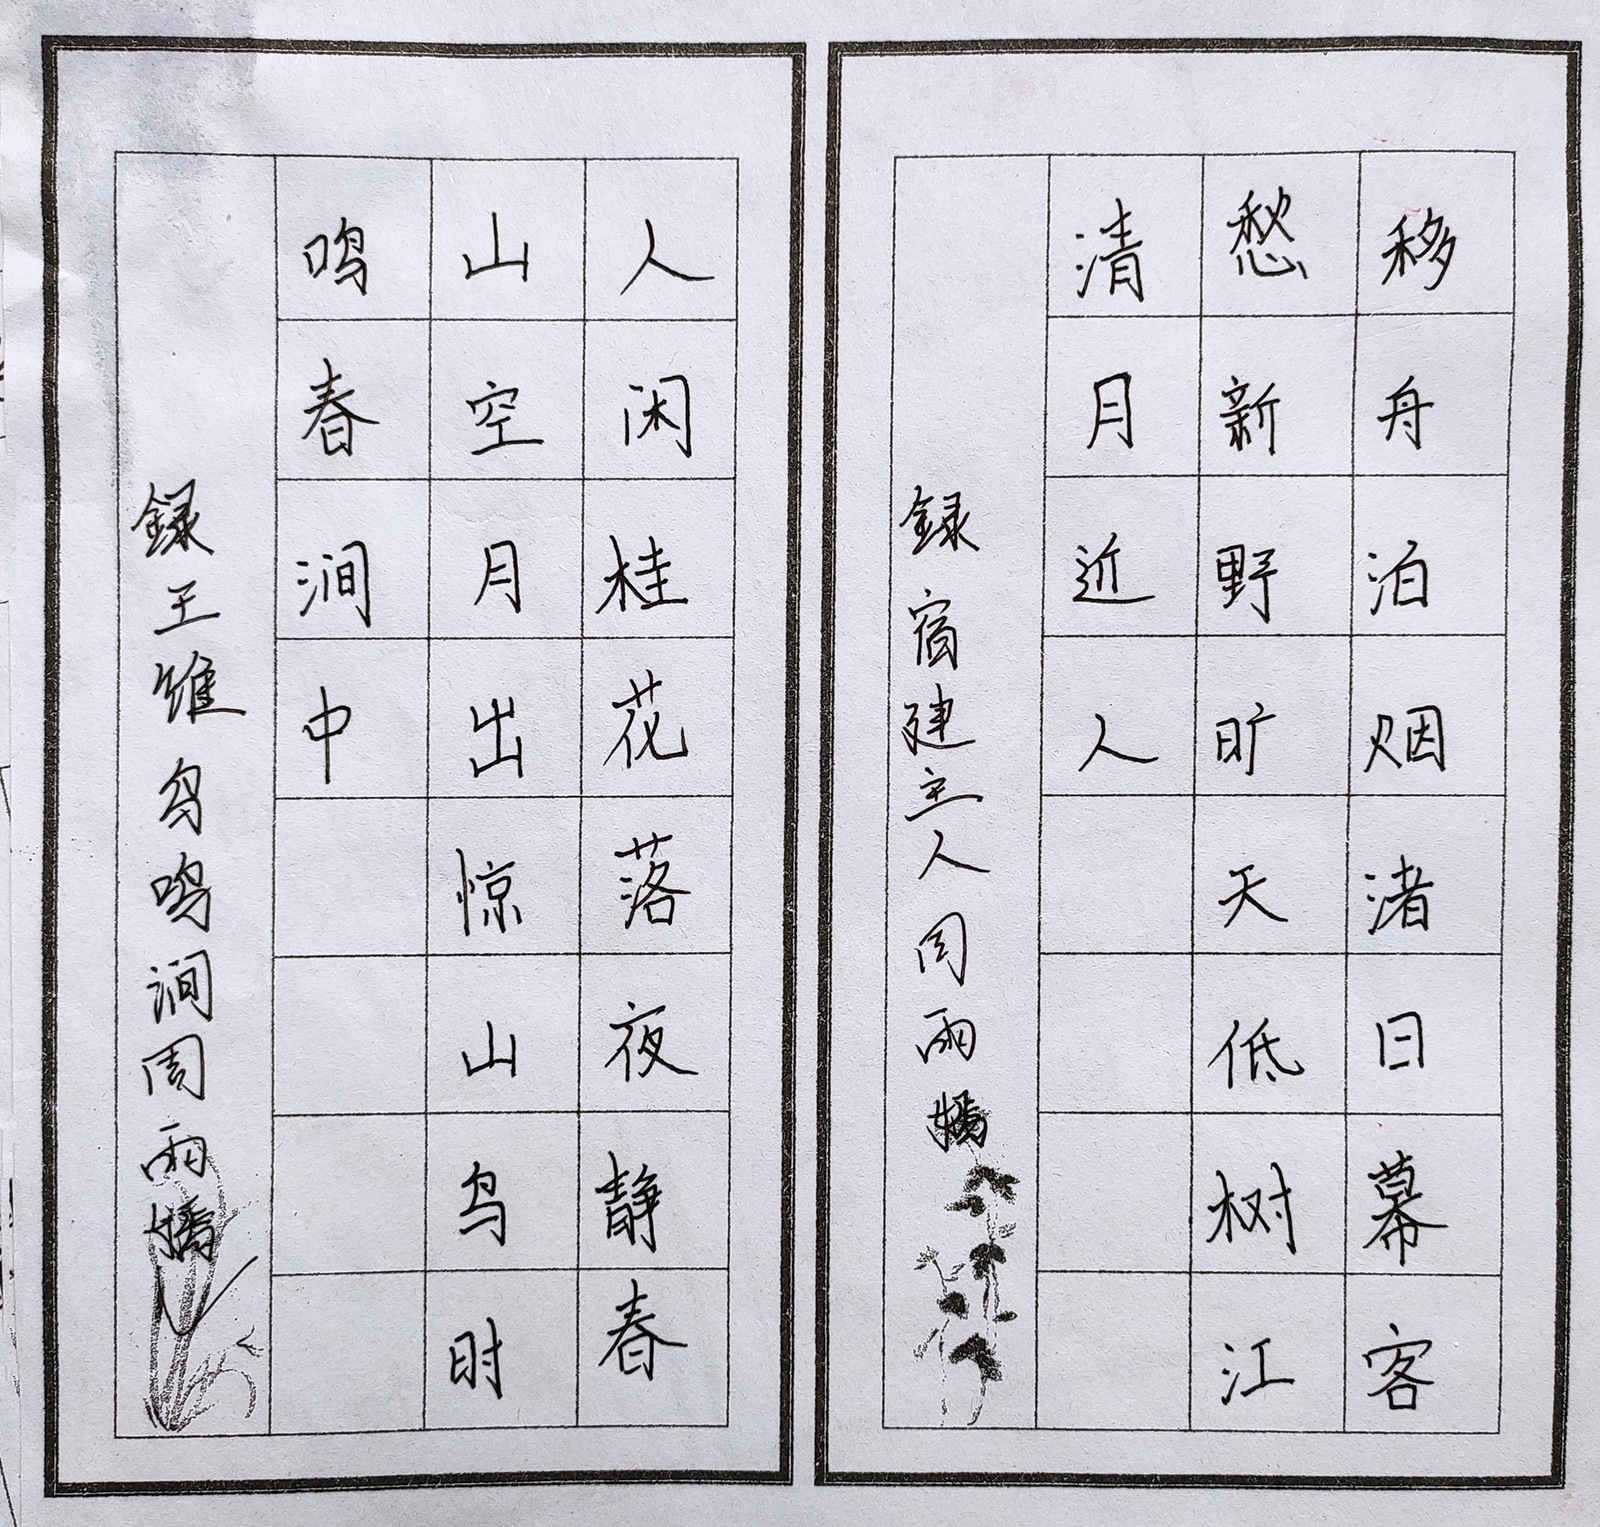 移舟泊烟渚日幕客
愁新野旷天低树江
清月近人
録宿建主人周雨
人闲桂花落夜静春
山空月出惊山鸟时
鸣春涧中
録王维鸟鸣涧周雨